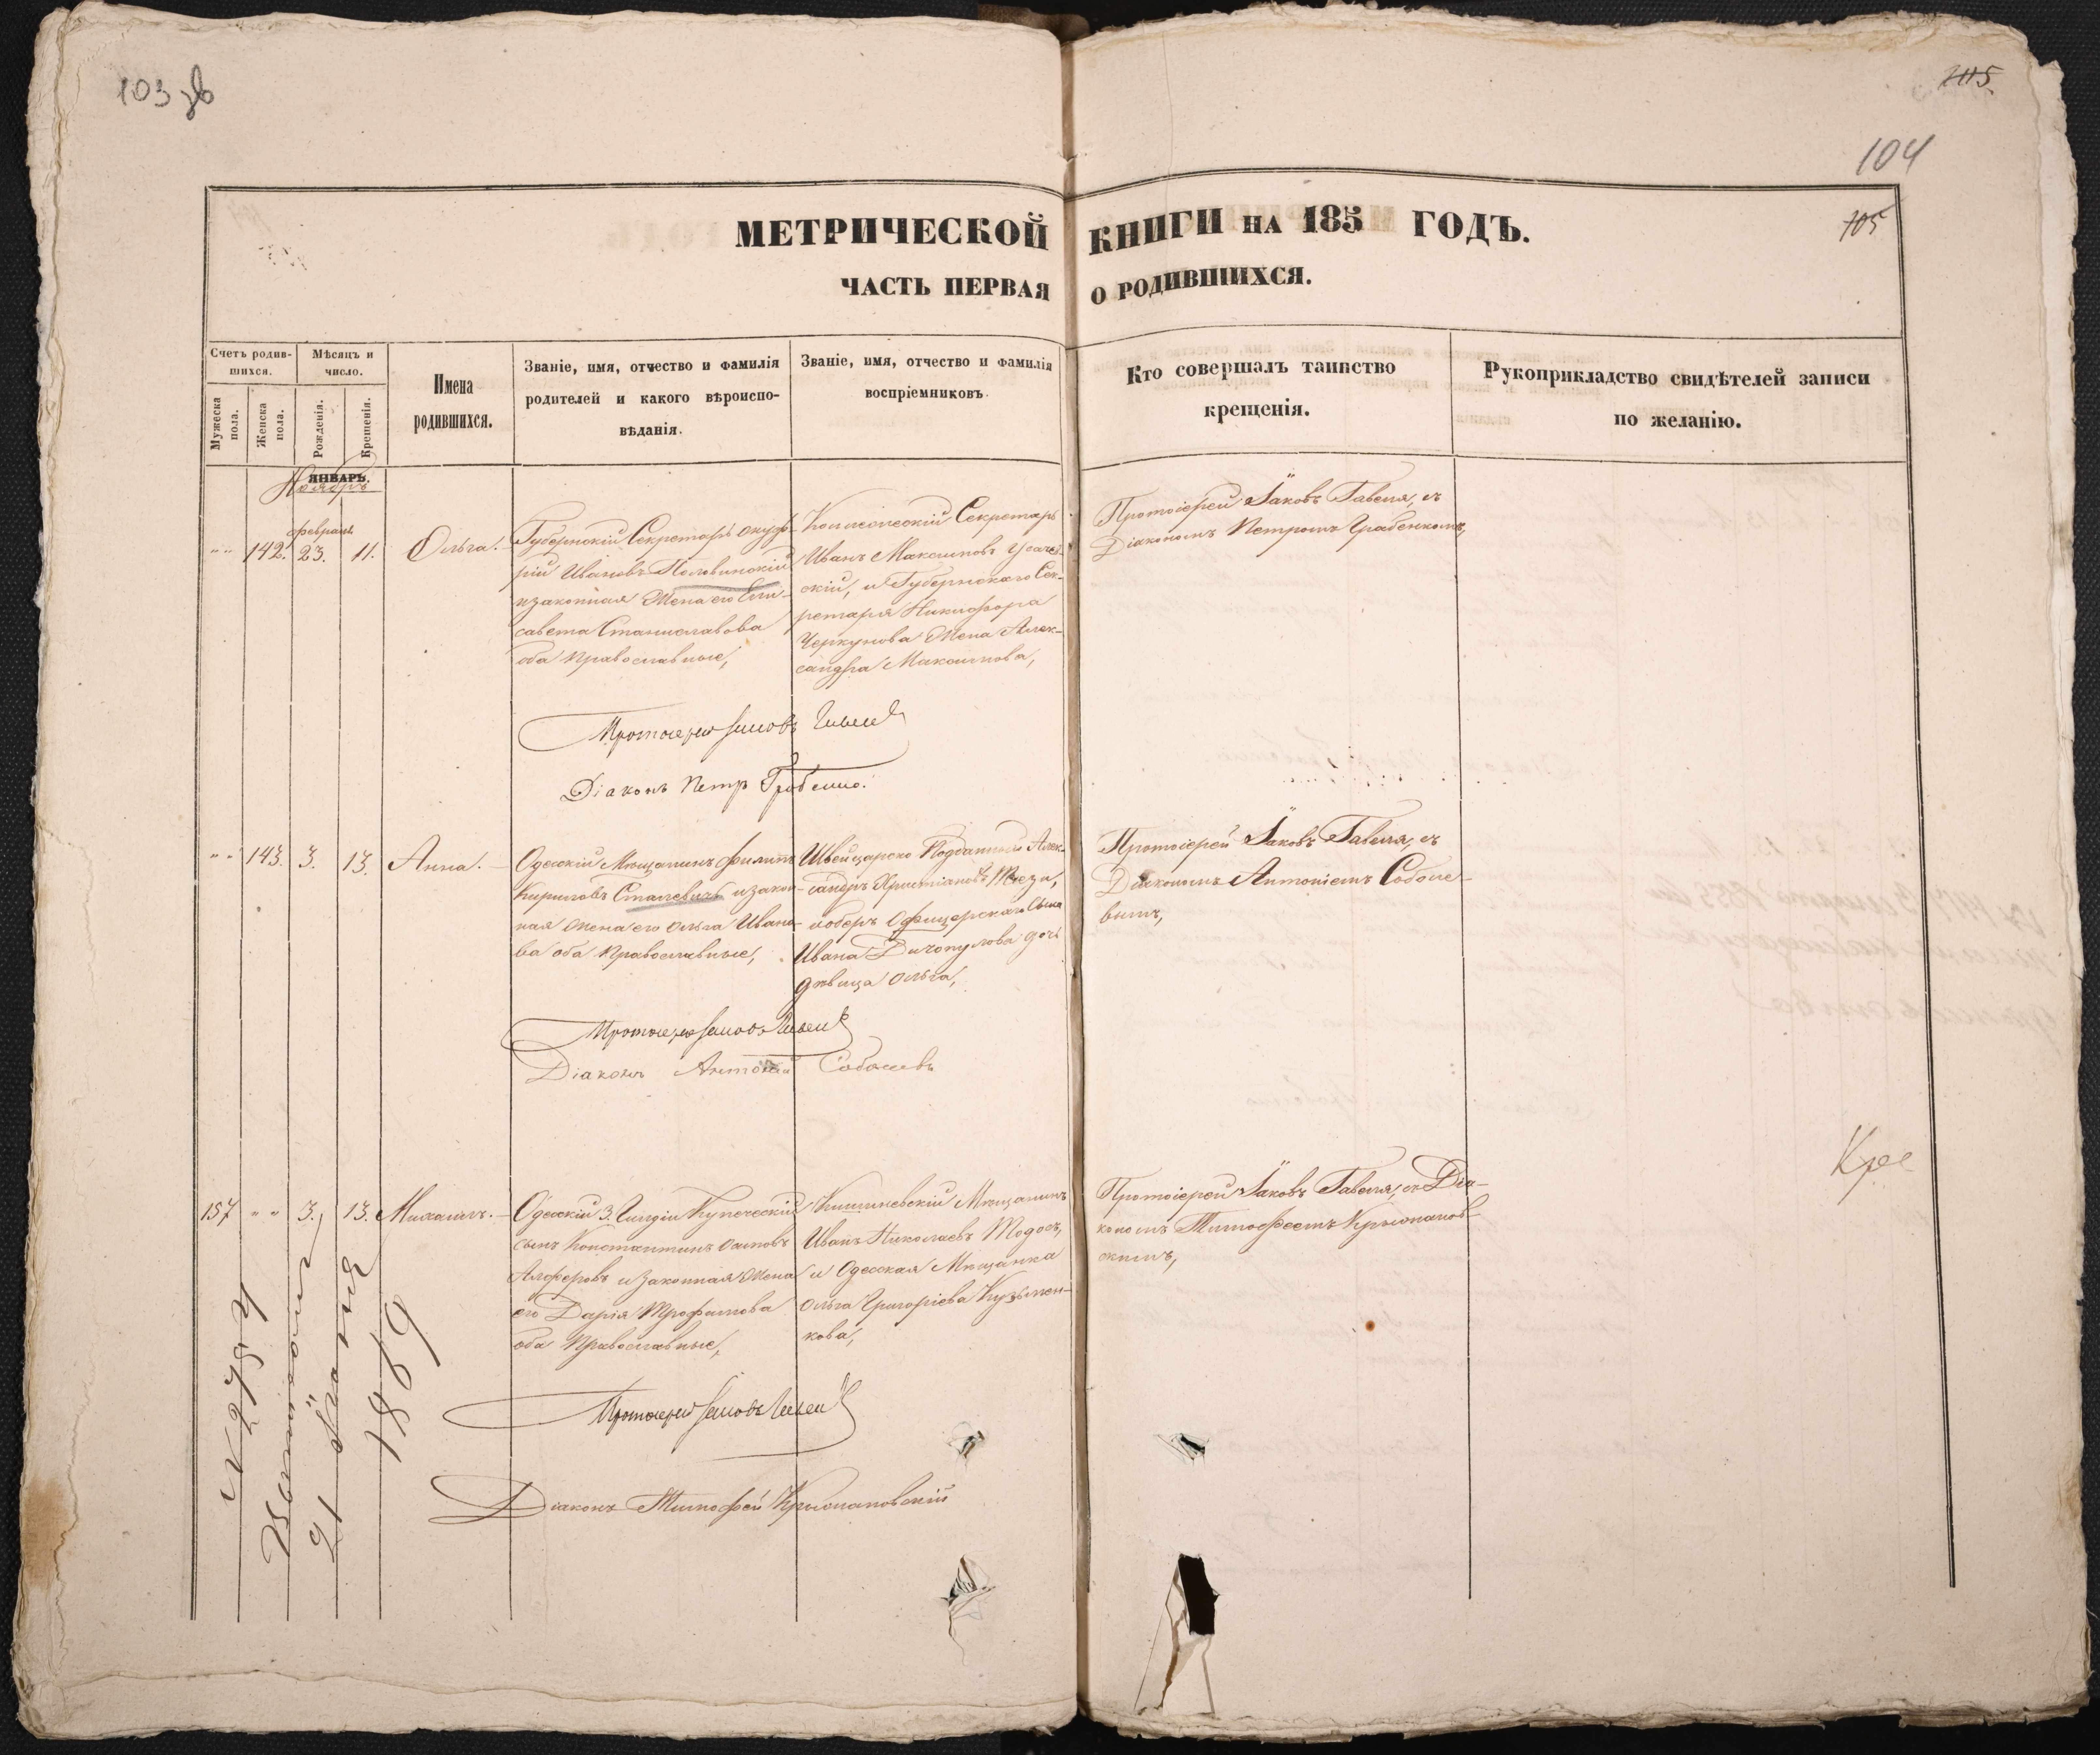 103 зв
205
104
МЕТРИЧЕСКОЙ КНИГИ НА 185 ГОДЪ.
105
ЧАСТЬ ПЕРВАЯ О РОДИВШИХСЯ.
Счетъ родив-
шихся.
Мужеска пола.
Женска пола.
Мѣсяцъ и
число.
Рожденія.
Крещенія.
Имена
родившихся.
Званіе, имя, отчество и фамилія
родителей и какого вѣроиспо-
вѣданія.
Званіе, имя, отчество и фамилія
воспріемниковъ.
Кто совершалъ таинство
крещенія.
Рукоприкладство свидѣтелей записи
по желанію.
ЯНВАРЬ.
Ноябрь
февраля
142. 23. 11. Ольга.
Губернскій Секретарь
Ивановъ Половинскій
и законная жена его Ели-
савета Станиславова
оба православные,
Коллежскій Секретарь
Иванъ Максимовъ
скій, и Губернскаго Сек-
ретаря Никифора
Черкунова жена Алек-
сандра Максимова,
Протоіерей Іаковъ Гавеля, съ
Діакономъ Петромъ Грабенкомъ,
Протоіерей Іаковъ
Діаконъ Петр
143. 3. 13. Анна.
Одесскій Мѣщанинъ Филипъ
Кириловъ Сталевичъ и закон-
ная жена его Ольга Ивано-
ва оба православные,
Швейцарско Подданный Алек-
сандръ Христіановъ
Офицерскаго сына
Ивана Дичопулова дочь
дѣвица Ольга,
Протоіерей Іаковъ Гавеля, съ
Діакономъ Антоніемъ Соболе-
вымъ,
Протоіерей Іаковъ
Діаконъ Антоній Соболевъ
157 3. 13. Михаилъ.
Одесскій 3. Гильдіи Купеческій
сынъ Константинъ Осиповъ
Алферовъ и законная жена
его Дарія Трофимова
оба православные,
Кишиневскій Мѣщанинъ
Иванъ Николаевъ Тодосъ,
и Одесская Мѣщанка
Ольга Григоріева Кузьмен-
кова,
Протоіерей Іаковъ Гавеля, съ Діа-
кономъ Тимофеемъ Крыжанов-
скимъ,
Протоіерей Іаковъ
Діаконъ Тимофей Крыжановскій
21 Іюня
1869